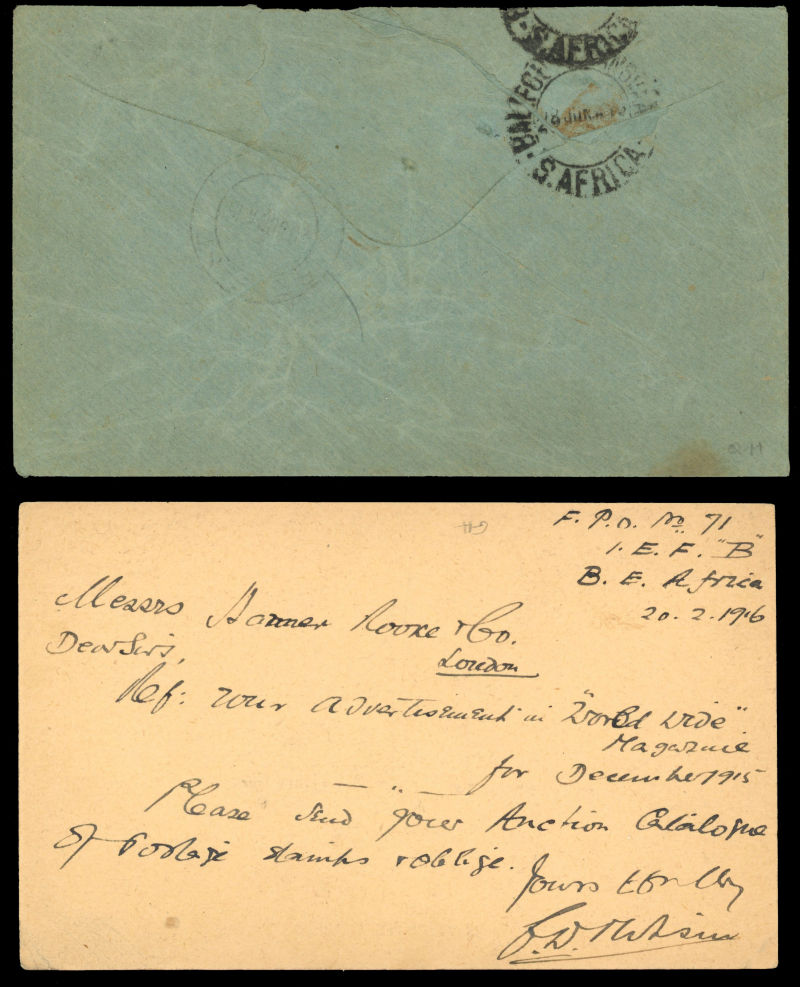 S. AFRICA
BALFOUR
18 JUN
S. AFRICA
F. P. O. No 71
I. E. F. "B"
B. E. Africa
20. 2. 1916
Messrs Harmer Rooke & Co.
Dear Sirs, London
Ref: your advertisement in "World Wide"
Magazine
for December 1915
Please send your Auction Catalogue
of Postage stamps & oblige.
Yours